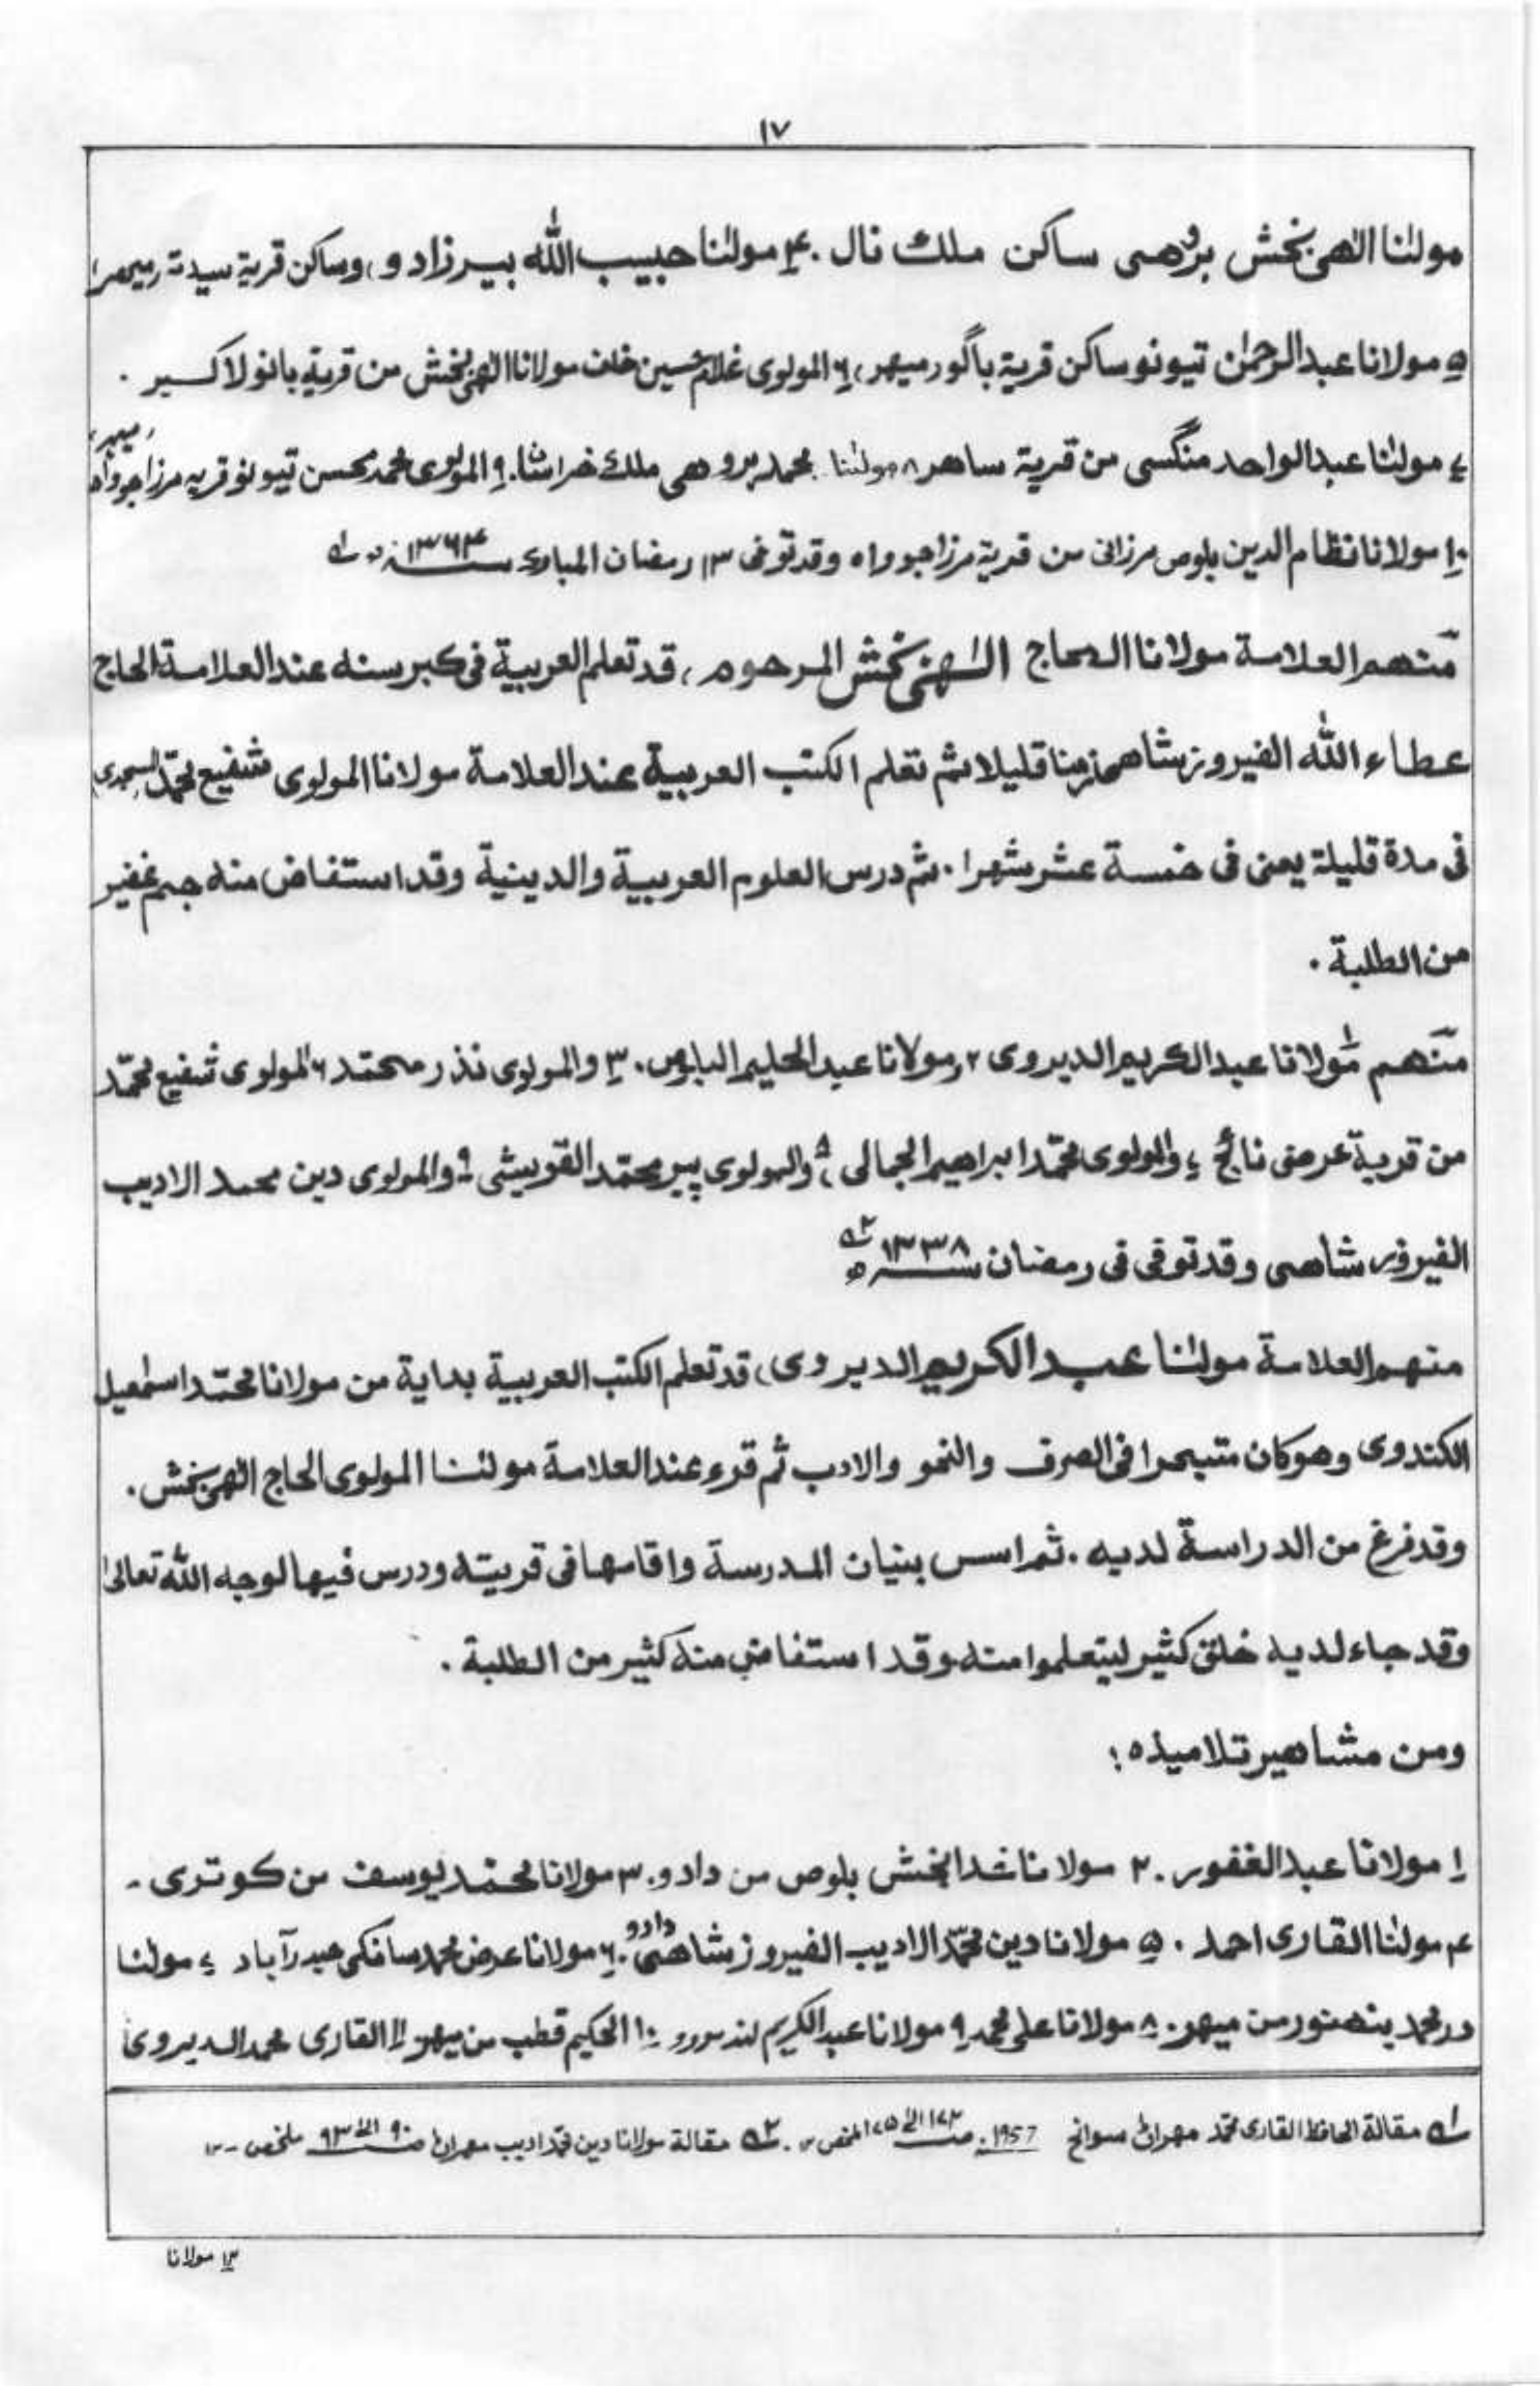 ١٧
مولٰنا الٰهی بخش بروهی ساکن ملك نال . ۴ مولٰنا حبيب الله بيرزادو، وساکن قرية سيدته
۵ مولانا عبدالرحمٰن تيونو ساکن قرية باگو رميهر، ٦ المولوی غلام حسين خلف مولانا الٰهی بخش من قرية بانو لاکسير .
۷ مولٰنا عبدالواحد منگسی من قرية ساهر ۸ مولٰنا محمد بروهی ملك خراشا. ۹ المولوی محمد محسن تيونو قريه مرزاجوواه رميهر،
۱۰ مولانا نظام الدين بلوص مرزانی من قرية مرزاجوواه وقد توفی ۱۳ رمضان المبارک سنه ۱۳۶۴ ه ل
منهم العلامة مولانا الحاج الٰهی بخش المرحوم، قد تعلم العربية فی کبر سنه عند العلامة الحاج
عطاء الله الفيروزشاهی زمنا قليلا ثم تعلم الکتب العربية عند العلامة مولانا المولوی شفيع محمّد
فی مدة قليلة يعنی فی خمسة عشر شهرا . ثم درس العلوم العربية والدينية وقد استفاض منه جم غفير
من الطلبة .
منهم ۱ مولانا عبدالکريم الديروی ۲ ومولانا عبدالحليم البلوص. ۳ والمولوی نذر محمّد ٦ المولوی شفيع محمّد
من قرية عرضی نائچ ۷ والمولوی محمّد ابراهيم الجمالی ۸ والمولوی پير محمّد القريشی ۹ والمولوی دين محمد الاديب
الفيروز شاهی وقد توفی فی رمضان سنه ۱۳۳۸ ه ۲
منهم العلامة مولٰنا عبدالکريم الديروی، قد تعلم الکتب العربية بداية من مولانا محمّد اسمٰعيل
الکندوی وهو کان متبحرا فی الصرف والنحو والادب ثم قرء عند العلامة مولٰنا المولوی الحاج الٰهی بخش .
وقد فرغ من الدراسة لديه . ثم اسس بنيان المدرسة واقامها فی قريته ودرس فيها لوجه الله تعالیٰ
وقد جاء لديه خلق کثير ليتعلموا منه وقد استفاض منه کثير من الطلبة .
ومن مشاهير تلاميذه :
۱ مولانا عبدالغفور . ۲ مولانا خدا بخش بلوص من دادو. ۳ مولانا محمّد يوسف من کوتری -
۴ مولٰنا القاری احمد . ۵ مولانا دين محمّد الاديب الفيروزشاهی دادو . ٦ مولانا عرض محمد سانکی حيدرآباد ۷ مولٰنا
در محمد پنهنور من ميهر. ۸ مولانا علی محمد ۹ مولانا عبدالکريم لند ۱۰ الحکيم قطب من ميهر ۱۱ القاری محمد الديروی
۱ مقالة الحافظ القاری محمّد مهران سوانح 1957. صـ ۱۷۳ الیٰ ۱۷۵ ملخص ۱۲ . ۲ مقالة مولانا دين محمّد اديب مهران صـ ۹۰ الیٰ ۹۳ ملخص -۱۲
۱۲ مولانا